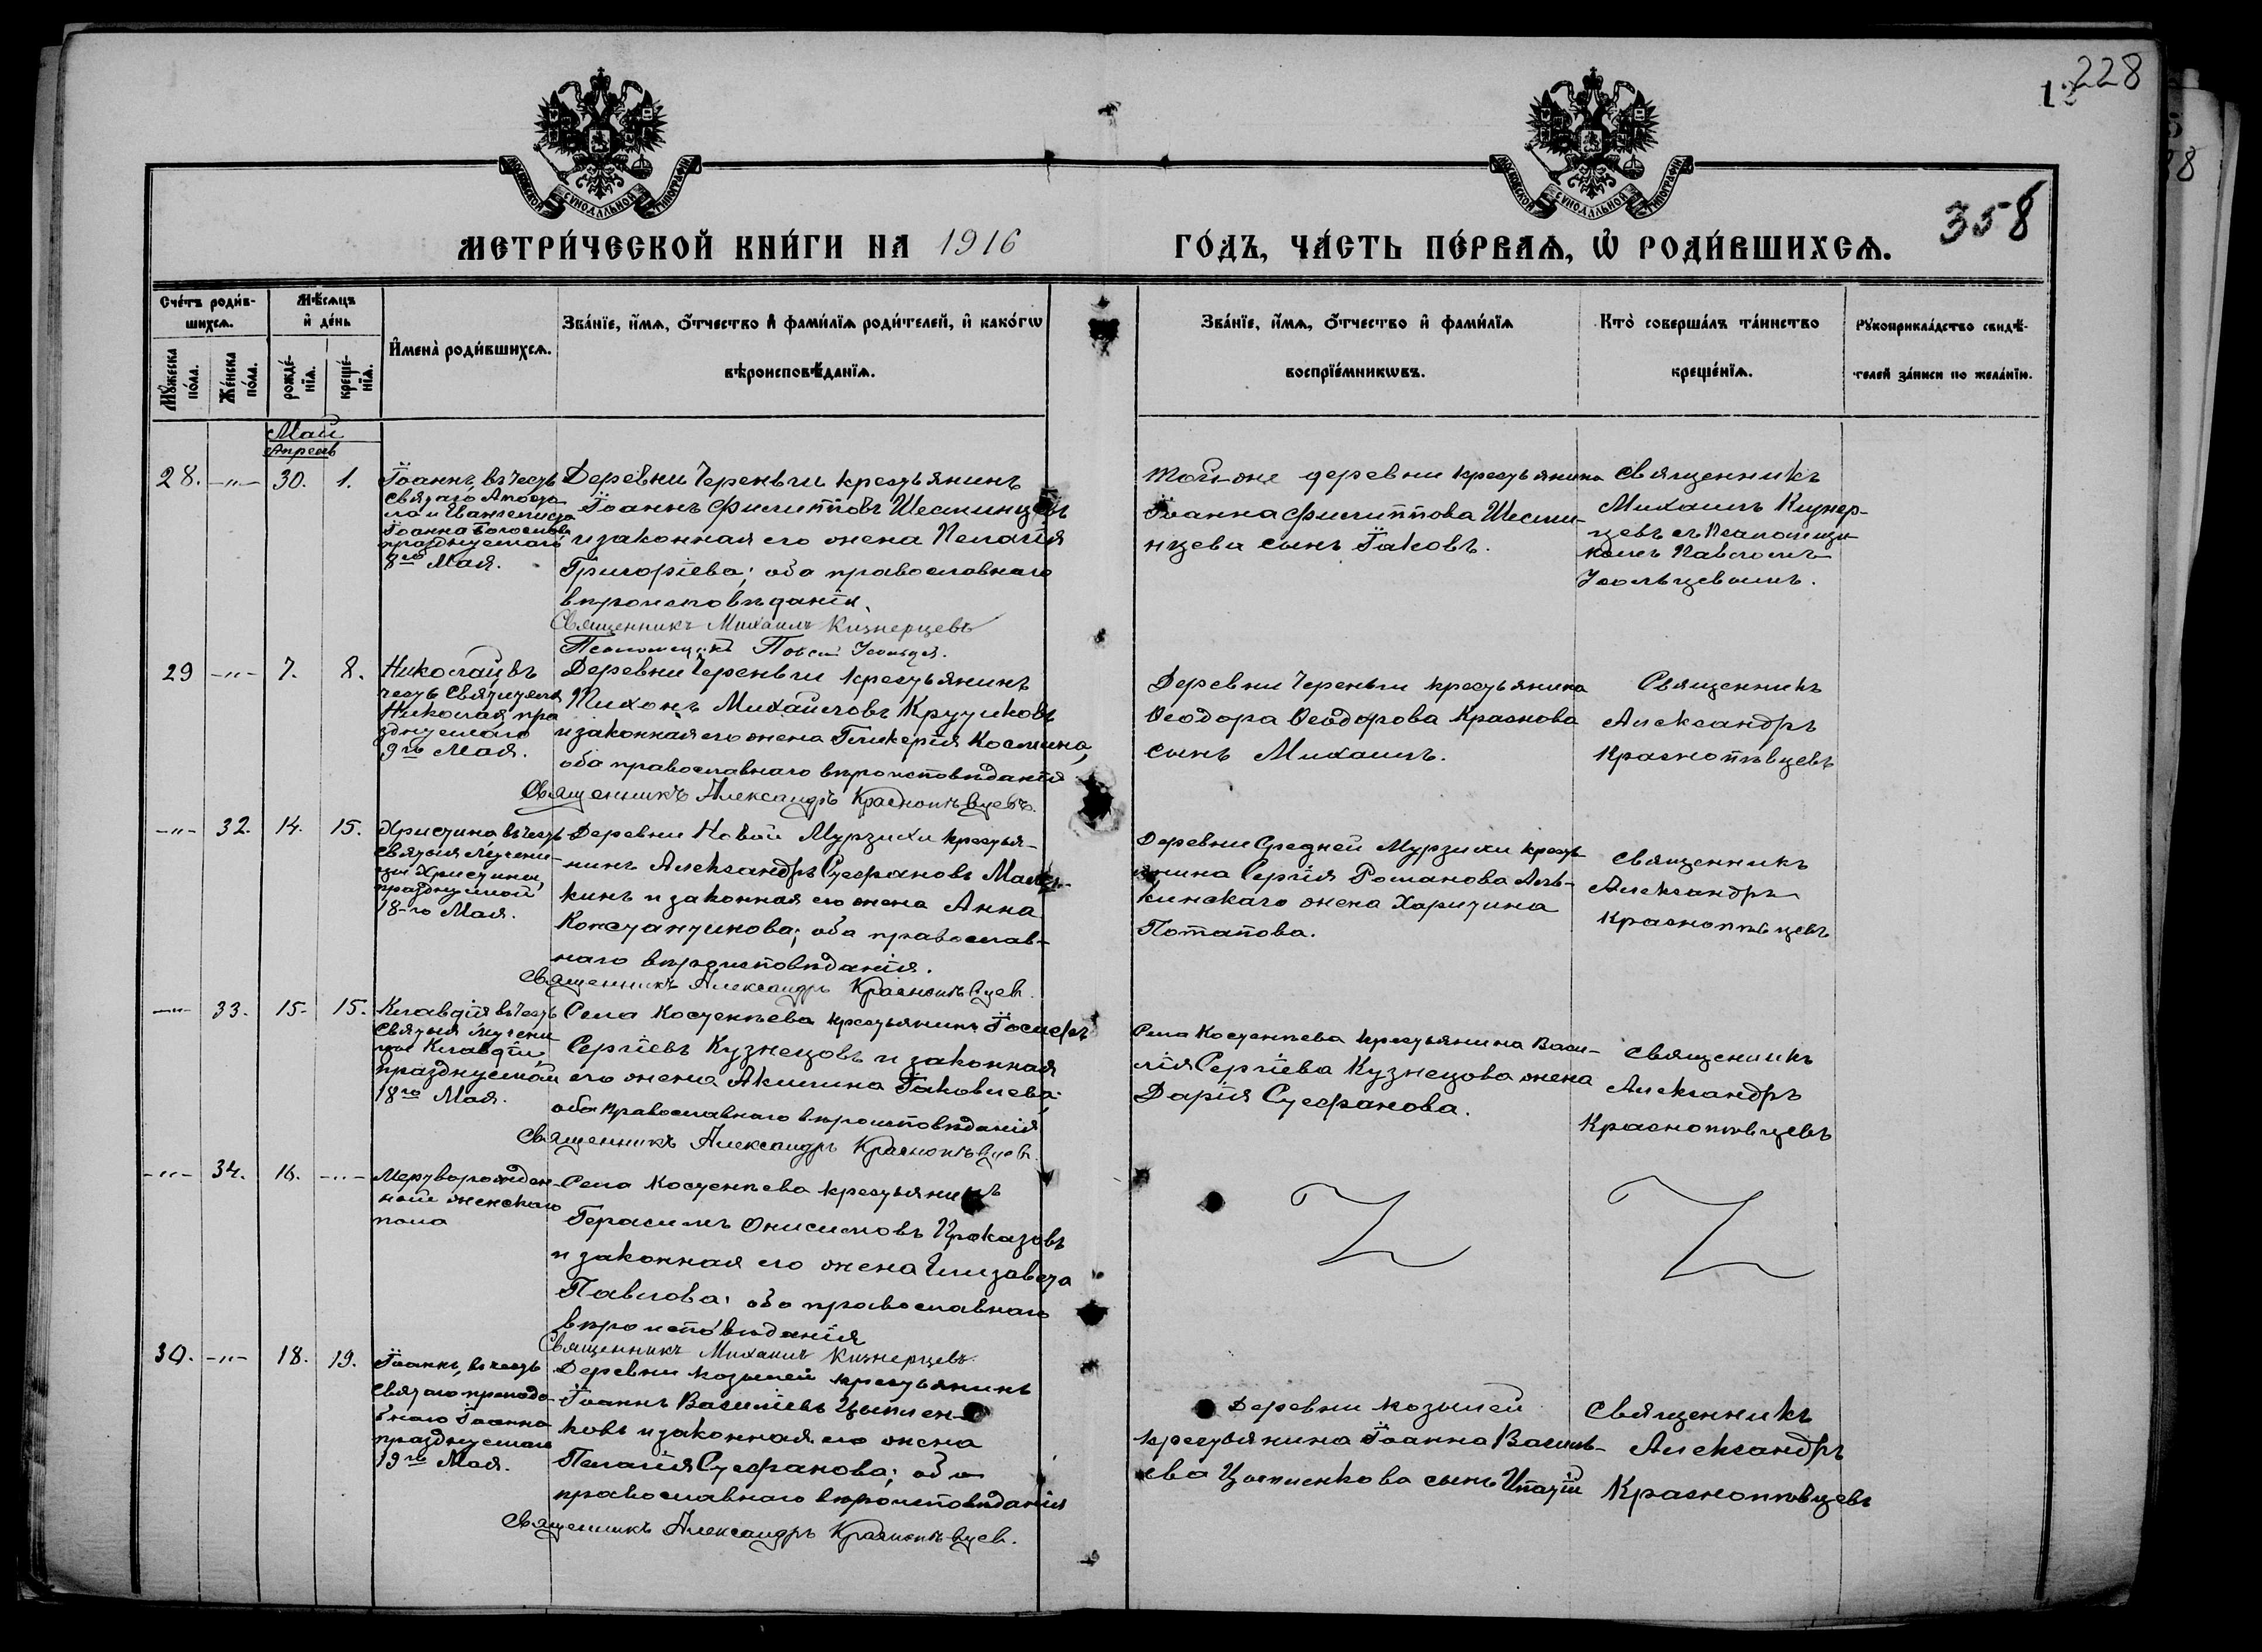 228
358
МОСКОВСКОЙ СУНОДАЛЬНОЙ ТИПОГРАФІИ
МОСКОВСКОЙ СУНОДАЛЬНОЙ ТИПОГРАФІИ
МЕТРИ́ЧЕСКОЙ КНИ́ГИ НА 1916 ГО́ДЪ, ЧА́СТЬ ПЕ́РВАѦ, Ѡ РОДИ́ВШИХСѦ.
Сче́тъ роди́в-
шихсѧ.
Мѣ́сѧцъ
и де́нь
Мꙋ́жеска
по́ла.
Же́нска
по́ла.
рожде́-
нїѧ.
креще́-
нїѧ.
И҆мена̀ роди́вшихсѧ.
Зва́нїе, и҆́мѧ, о҆́тчество и҆ фами́лїѧ роди́телей, и҆ како́гѡ
вѣроисповѣ́данїѧ.
Зва́нїе, и҆́мѧ, о҆́тчество и҆ фами́лїѧ
воспрїе́мникѡвъ.
Кто̀ соверша́лъ та́инство
креще́нїѧ.
Рꙋкоприкла́дство свидѣ́-
телей за́писи по жела́нїю.
Май
Апрель
28. -"- 30. 1.
Іоаннъ, въ честь
Святаго Апосто
ла и Евангелиста
Іоанна Богослова,
празднуемаго
8го Мая.
Деревни Череньги крестьянинъ
Іоаннъ Филипповъ Шестинцевъ
и законная его жена Пелагія
Григоріева; оба православнаго
вѣроисповѣданія.
Священникъ Михаилъ Кизнерцевъ
Псаломщикъ
Той-же деревни крестьянина
Іоанна Филиппова Шести-
нцева сынъ Іаковъ.
Священникъ
Михаилъ Кизнер-
цевъ съ Псаломщи-
комъ Павломъ
Усольцевымъ.
29 -"- 7. 8.
Николай въ
честь Святителя
Николая пра
зднуемаго
9го Мая.
Деревни Череньги крестьянинъ
Тихонъ Михайловъ Крутиковъ
и законная его жена Гликерія Косьмина,
оба православнаго вѣроисповѣданія
Священникъ Александръ Краснопѣвцевъ.
Деревни Череньги крестьянина
Ѳеодора Ѳеодорова Краснова
сынъ Михаилъ.
Священникъ
Александръ
Краснопѣвцевъ
-"- 32. 14. 15.
Христина въ честь
Святыя Мучени-
цы Христины,
празднуемой
18-го Мая.
Деревни Новой Мурзихи крестья-
нинъ Александръ Стефановъ
кинъ и законная его жена Анна
Константинова; оба православ-
наго вѣроисповѣданія.
Священникъ Александръ Краснопѣвцевъ.
Деревни Средней Мурзихи кресть
янина Сергія Романова Аль-
кинскаго жена Харитина
Потапова.
Священникъ
Александръ
Краснопѣвцевъ
-"- 33. 15. 15.
Клавдія въ честь
Святыя Мучени
цы Клавдіи,
празднуемой
18го Мая.
Села Костенѣева крестьянинъ Іосифъ
Сергіевъ Кузнецовъ и законная
его жена Акилина Іаковлева;
оба православнаго вѣроисповѣданія
Священникъ Александръ Краснопѣвцевъ.
Села Костенѣева крестьянина Васи-
лія Сергіева Кузнецова жена
Дарія Стефанова.
Священникъ
Александръ
Краснопѣвцевъ
-"- 34. 16. -"-
Мертворожден-
ный женскаго
пола
Села Костенѣева крестьянинъ
Герасимъ Онисимовъ Проказовъ
и законная его жена Елизавета
Павлова; оба православнаго
вѣроисповѣданія
Священникъ Михаилъ Кизнерцевъ.
30. -"- 18. 19.
Іоаннъ, въ честь
Святаго преподо
бнаго Іоанна
празднуемаго
19го Мая.
Деревни Козылей крестьянинъ
Іоаннъ Василіевъ Цыплен-
ковъ и законная его жена
Пелагія Стефанова; оба
православнаго вѣроисповѣданія
Священникъ Александръ Краснопѣвцевъ.
Деревни Козылей
крестьянина Іоанна Василь-
ева Цыпленкова сынъ Ипатій
Священникъ
Александръ
Краснопѣвцевъ